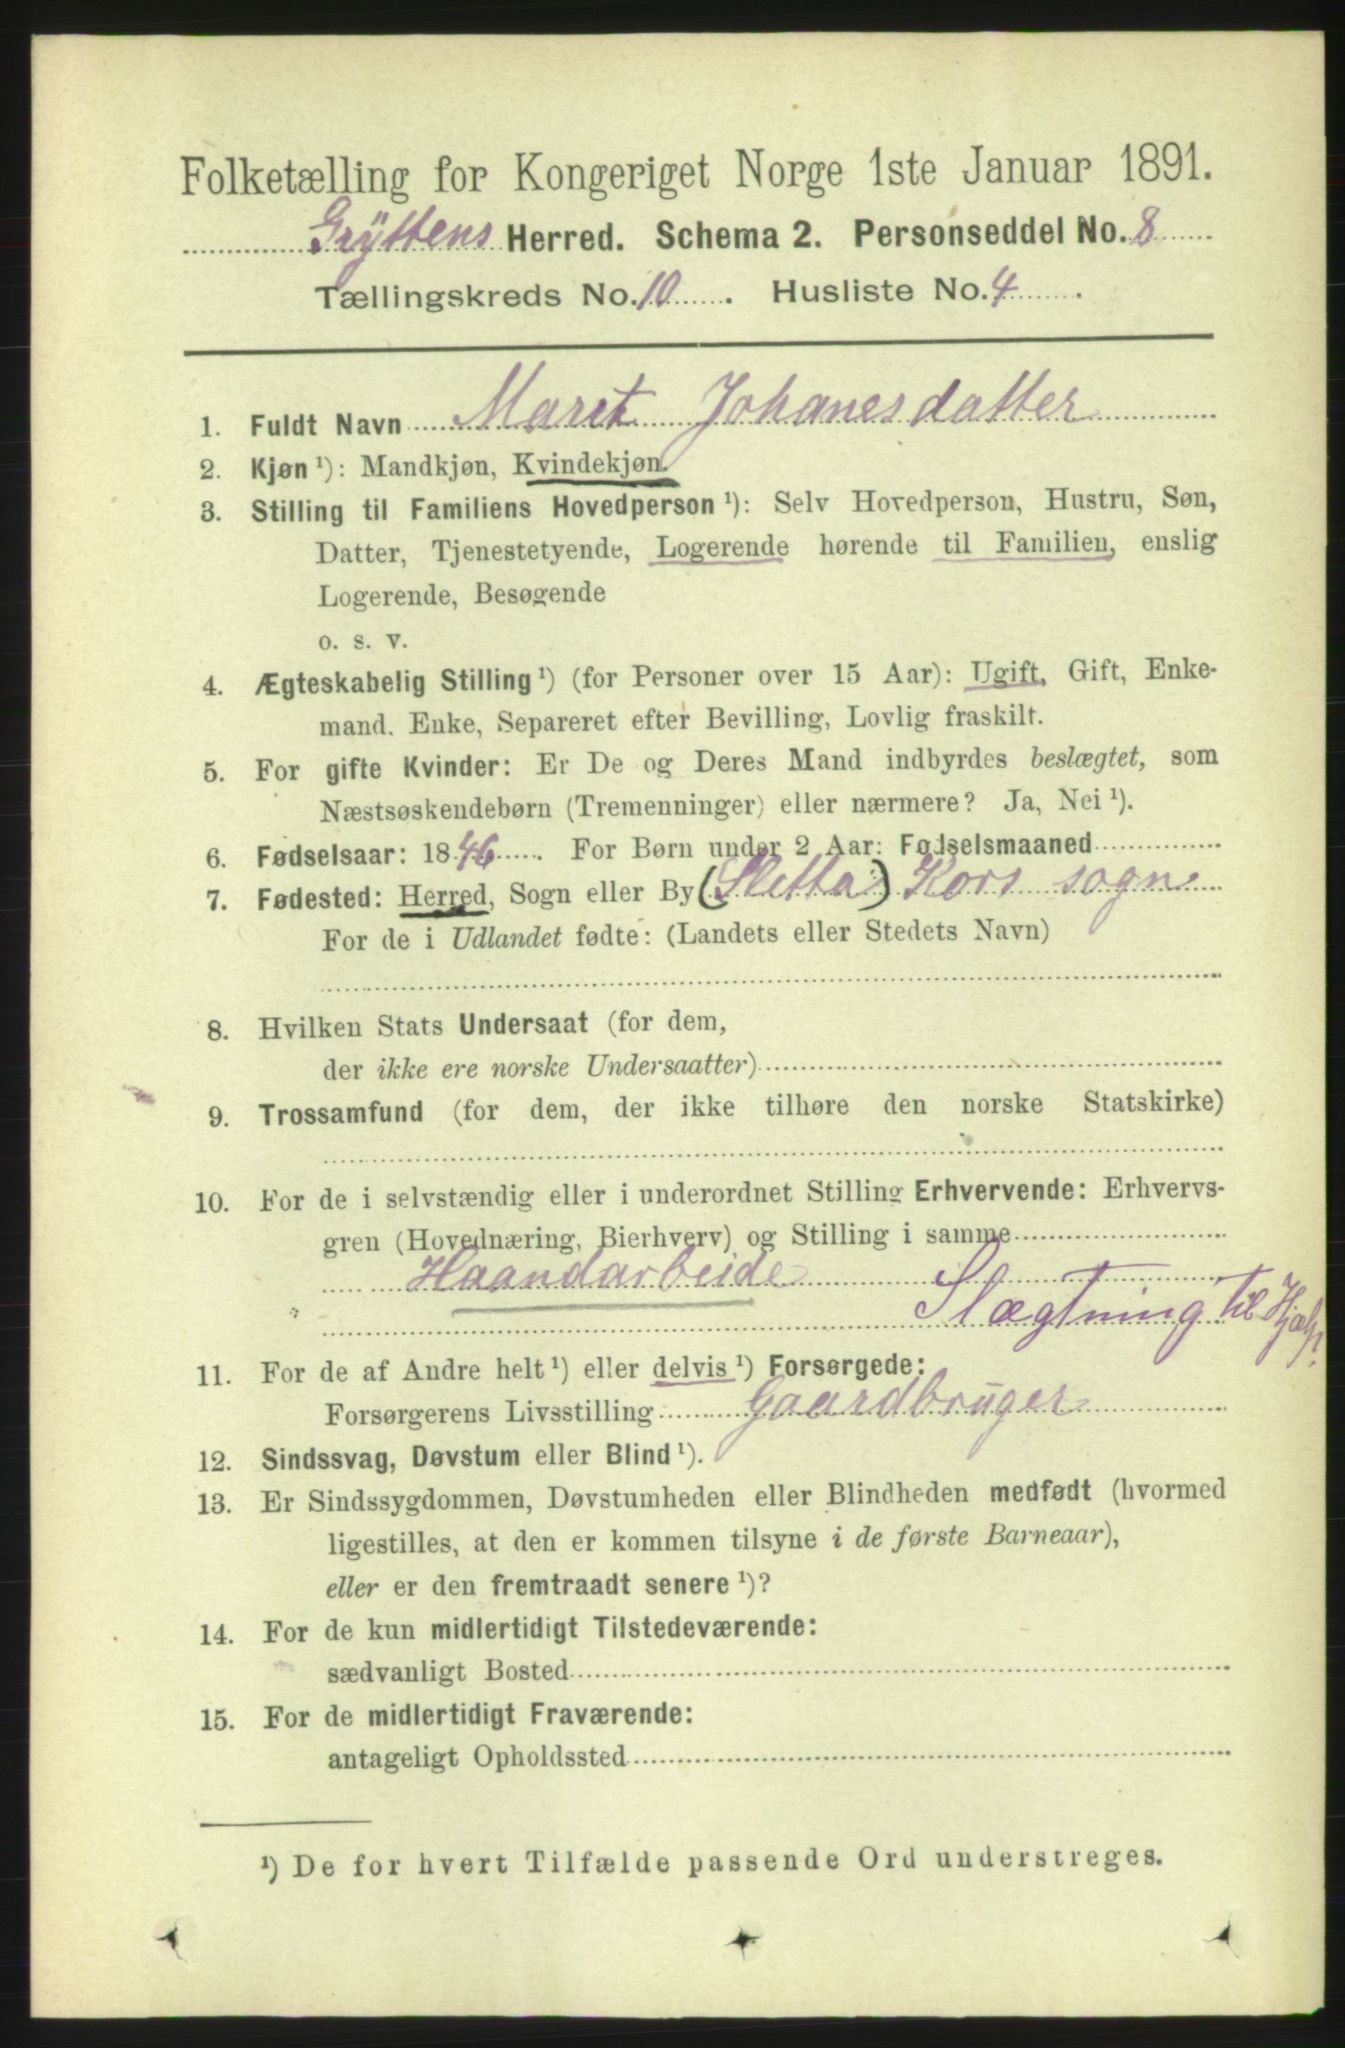 Folketælling for Kongeriget Norge 1ste Januar 1891.
Gryttens Herred. Schema 2. Personseddel No. 8
Tællingskreds No. 10. Husliste No. 4.
1. Fuldt Navn Maret Johanesdatter
2. Kjøn ¹): Mandkjøn, Kvindekjøn.
3. Stilling til Familiens Hovedperson ¹): Selv Hovedperson, Hustru, Søn,
Datter, Tjenestetyende, Logerende hørende til Familien, enslig
Logerende, Besøgende
o. s. v.
4. Ægteskabelig Stilling ¹) (for Personer over 15 Aar): Ugift, Gift, Enke-
mand, Enke, Separeret efter Bevilling, Lovlig fraskilt.
5. For gifte Kvinder: Er De og Deres Mand indbyrdes beslægtet, som
Næstsøskendebørn (Tremenninger) eller nærmere? Ja, Nei ¹).
6. Fødselsaar: 1846. For Børn under 2 Aar: Fødselsmaaned
7. Fødested: Herred, Sogn eller By (Sletta) Kors sogn
For de i Udlandet fødte: (Landets eller Stedets Navn)
8. Hvilken Stats Undersaat (for dem,
der ikke ere norske Undersaatter)
9. Trossamfund (for dem, der ikke tilhøre den norske Statskirke)
10. For de i selvstændig eller i underordnet Stilling Erhvervende: Erhvervs-
gren (Hovednæring, Bierhverv) og Stilling i samme
Haandarbeide
Slægtning til Hjælp.
11. For de af Andre helt ¹) eller delvis ¹) Forsørgede:
Forsørgerens Livsstilling Gaardbruger
12. Sindssvag, Døvstum eller Blind ¹).
13. Er Sindssygdommen, Døvstumheden eller Blindheden medfødt (hvormed
ligestilles, at den er kommen tilsyne i de første Barneaar),
eller er den fremtraadt senere ¹)?
14. For de kun midlertidigt Tilstedeværende:
sædvanligt Bosted
15. For de midlertidigt Fraværende:
antageligt Opholdssted
¹) De for hvert Tilfælde passende Ord understreges.